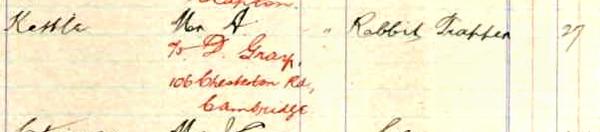 Clapton.
Kettle Mr A. " Rabbit Trapper 27
c/o D. Gray,
106 Chesterton Rd,
Cambridge